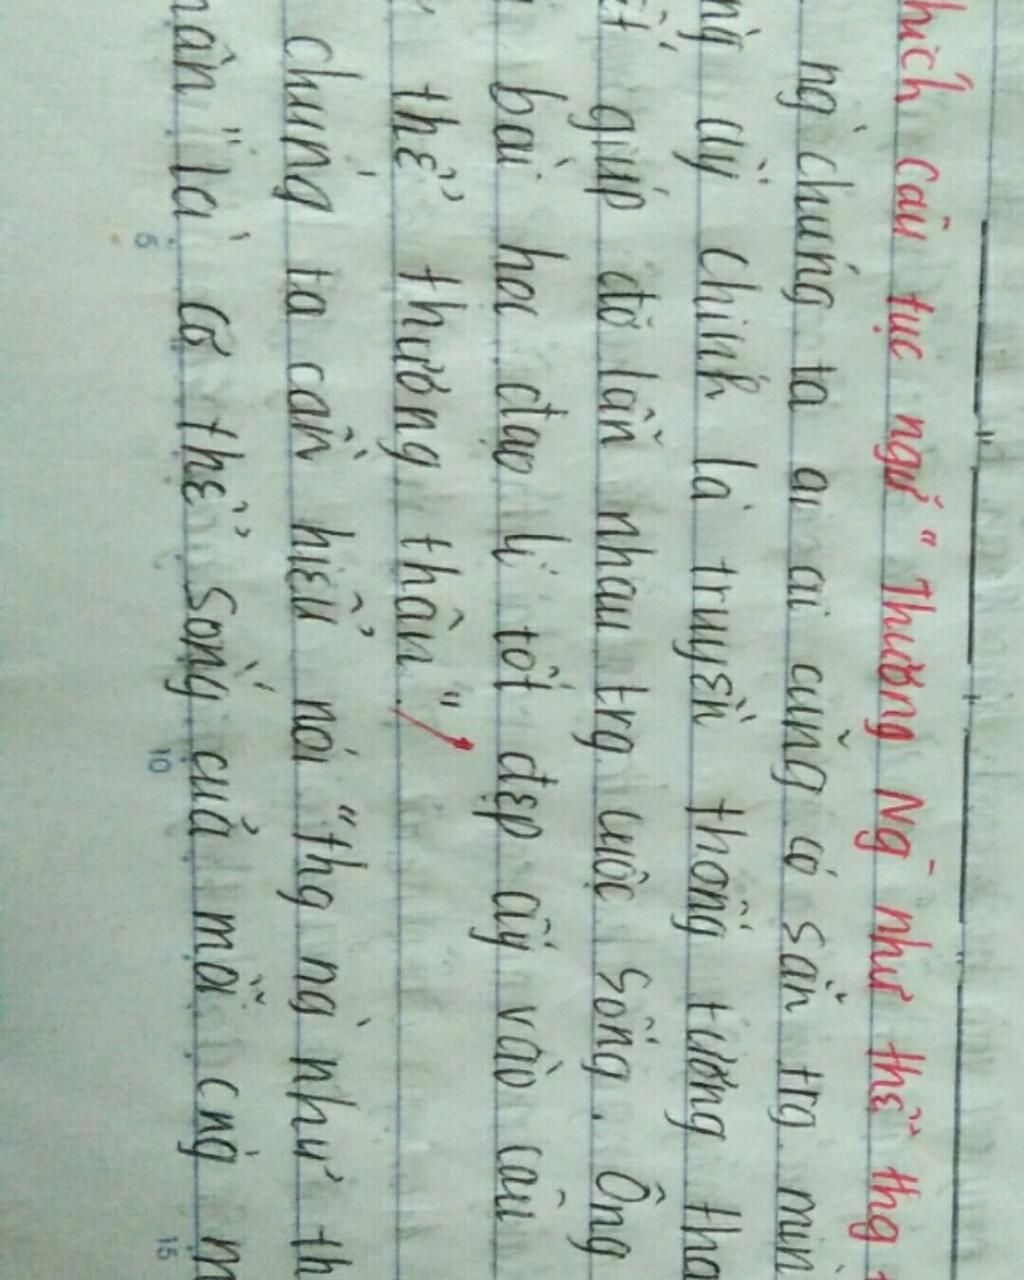 thích câu tục ngữ " Thương Ng` như thể thg
ng` chúng ta ai ai cũng có sẵn trg mìn
ng ấy chính là truyền thống tương tha
ết giúp đỡ lẫn nhau trg cuộc sống. Ông
bài học đạo lí tốt đẹp ấy vào câu
thể thương thân"/
chúng ta cần hiểu nói "thg ng` như th
hân" là cơ thể sống của mỗi cng m
5 10 15